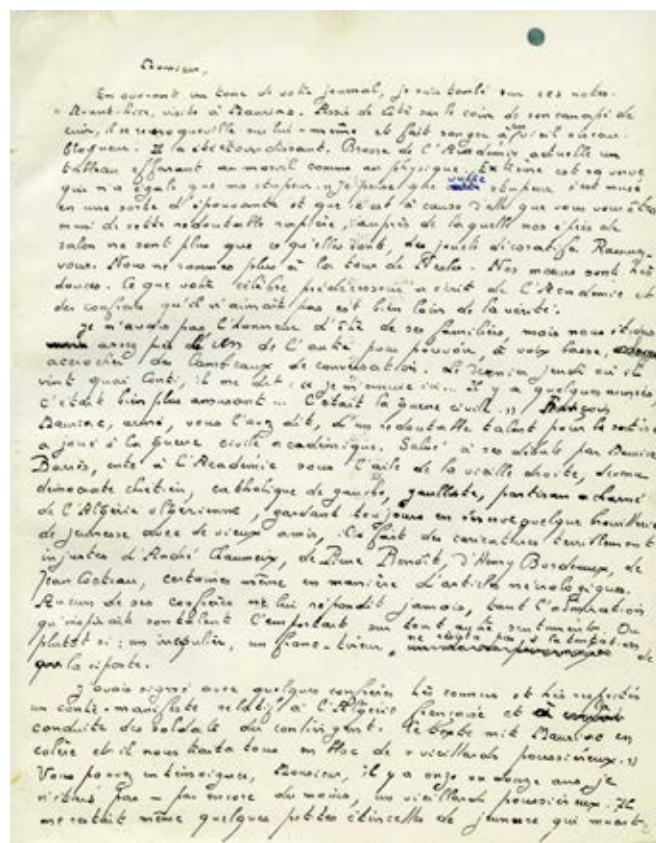 Monsieur,
En ouvrant un tome de votre journal, je suis tombé sur ces notes.
" Avant-hier, visite à Mauriac. Assis de côté sur le coin de son canapé de
cuir, il se recroqueville sur lui-même et fait songer à un oiseau.
Il a été étourdissant. Brosse de l'Académie actuelle un
tableau effarant au moral comme au physique. Extrême est sa verve
qui n'a égale que ma stupeur. " J'pense que votre stupeur s'est muée
en une sorte d'épouvante et que c'est à cause d'elle que vous vous êtes
muni de cette redoutable rapière, auprès de laquelle nos épées de
salon ne sont plus que ce qu'elles sont, des jouets décoratifs. Rassurez-
vous. Nous ne sommes plus à la tour de Nesle. Nos mœurs sont très
douces. Ce que votre célèbre prédécesseur a écrit de l'Académie et
des confrères qu'il n'aimait pas est bien loin de la vérité.
Je n'avais pas l'honneur d'être de ses familiers mais nous étions
assez près l'un de l'autre pour pouvoir, à voix basse,
accrocher des lambeaux de conversation. Le dernier jeudi où il
vint quai Conti, il me dit : « Je m'ennuie ici... Il y a quelques années,
c'était bien plus amusant... C'était la guerre civile. » François
Mauriac, armé, vous l'avez dit, d'un redoutable talent pour la satire
a joué à la guerre civile académique. Salué à ses débuts par Maurice
Barrès, entré à l'Académie sous l'aile de la vieille droite, devenu
démocrate chrétien, catholique de gauche, gaulliste, partisan acharné
de l'Algérie algérienne, gardant toujours en réserve quelque brouillerie
de jeunesse avec de vieux amis, il a fait des caricatures terriblement
injustes d'André Chaumeix, de Pierre Benoît, d'Henry Bordeaux, de
Jean Cocteau, certaines même en manière d'article nécrologique.
Aucun de ses confrères ne lui répondit jamais, tant l'admiration
qu'inspirait son talent l'emportait sur tout autre sentiment. Ou
plutôt si : un irrégulier, un franc-tireur, ne résista pas à la tentation de
la riposte.
J'avais signé avec quelques confrères très connus et très respectés
un contre-manifeste relatif à l'Algérie française et à
conduite des soldats du contingent. Le texte mit Mauriac en
colère et il nous traita tous en bloc de « vieillards poussiéreux. »
Vous pouvez en témoigner, Monsieur, il y a onze ou douze ans, je
n'étais pas – pas encore du moins, un vieillard poussiéreux. Il
me restait même quelques petites étincelles de jeunesse qui